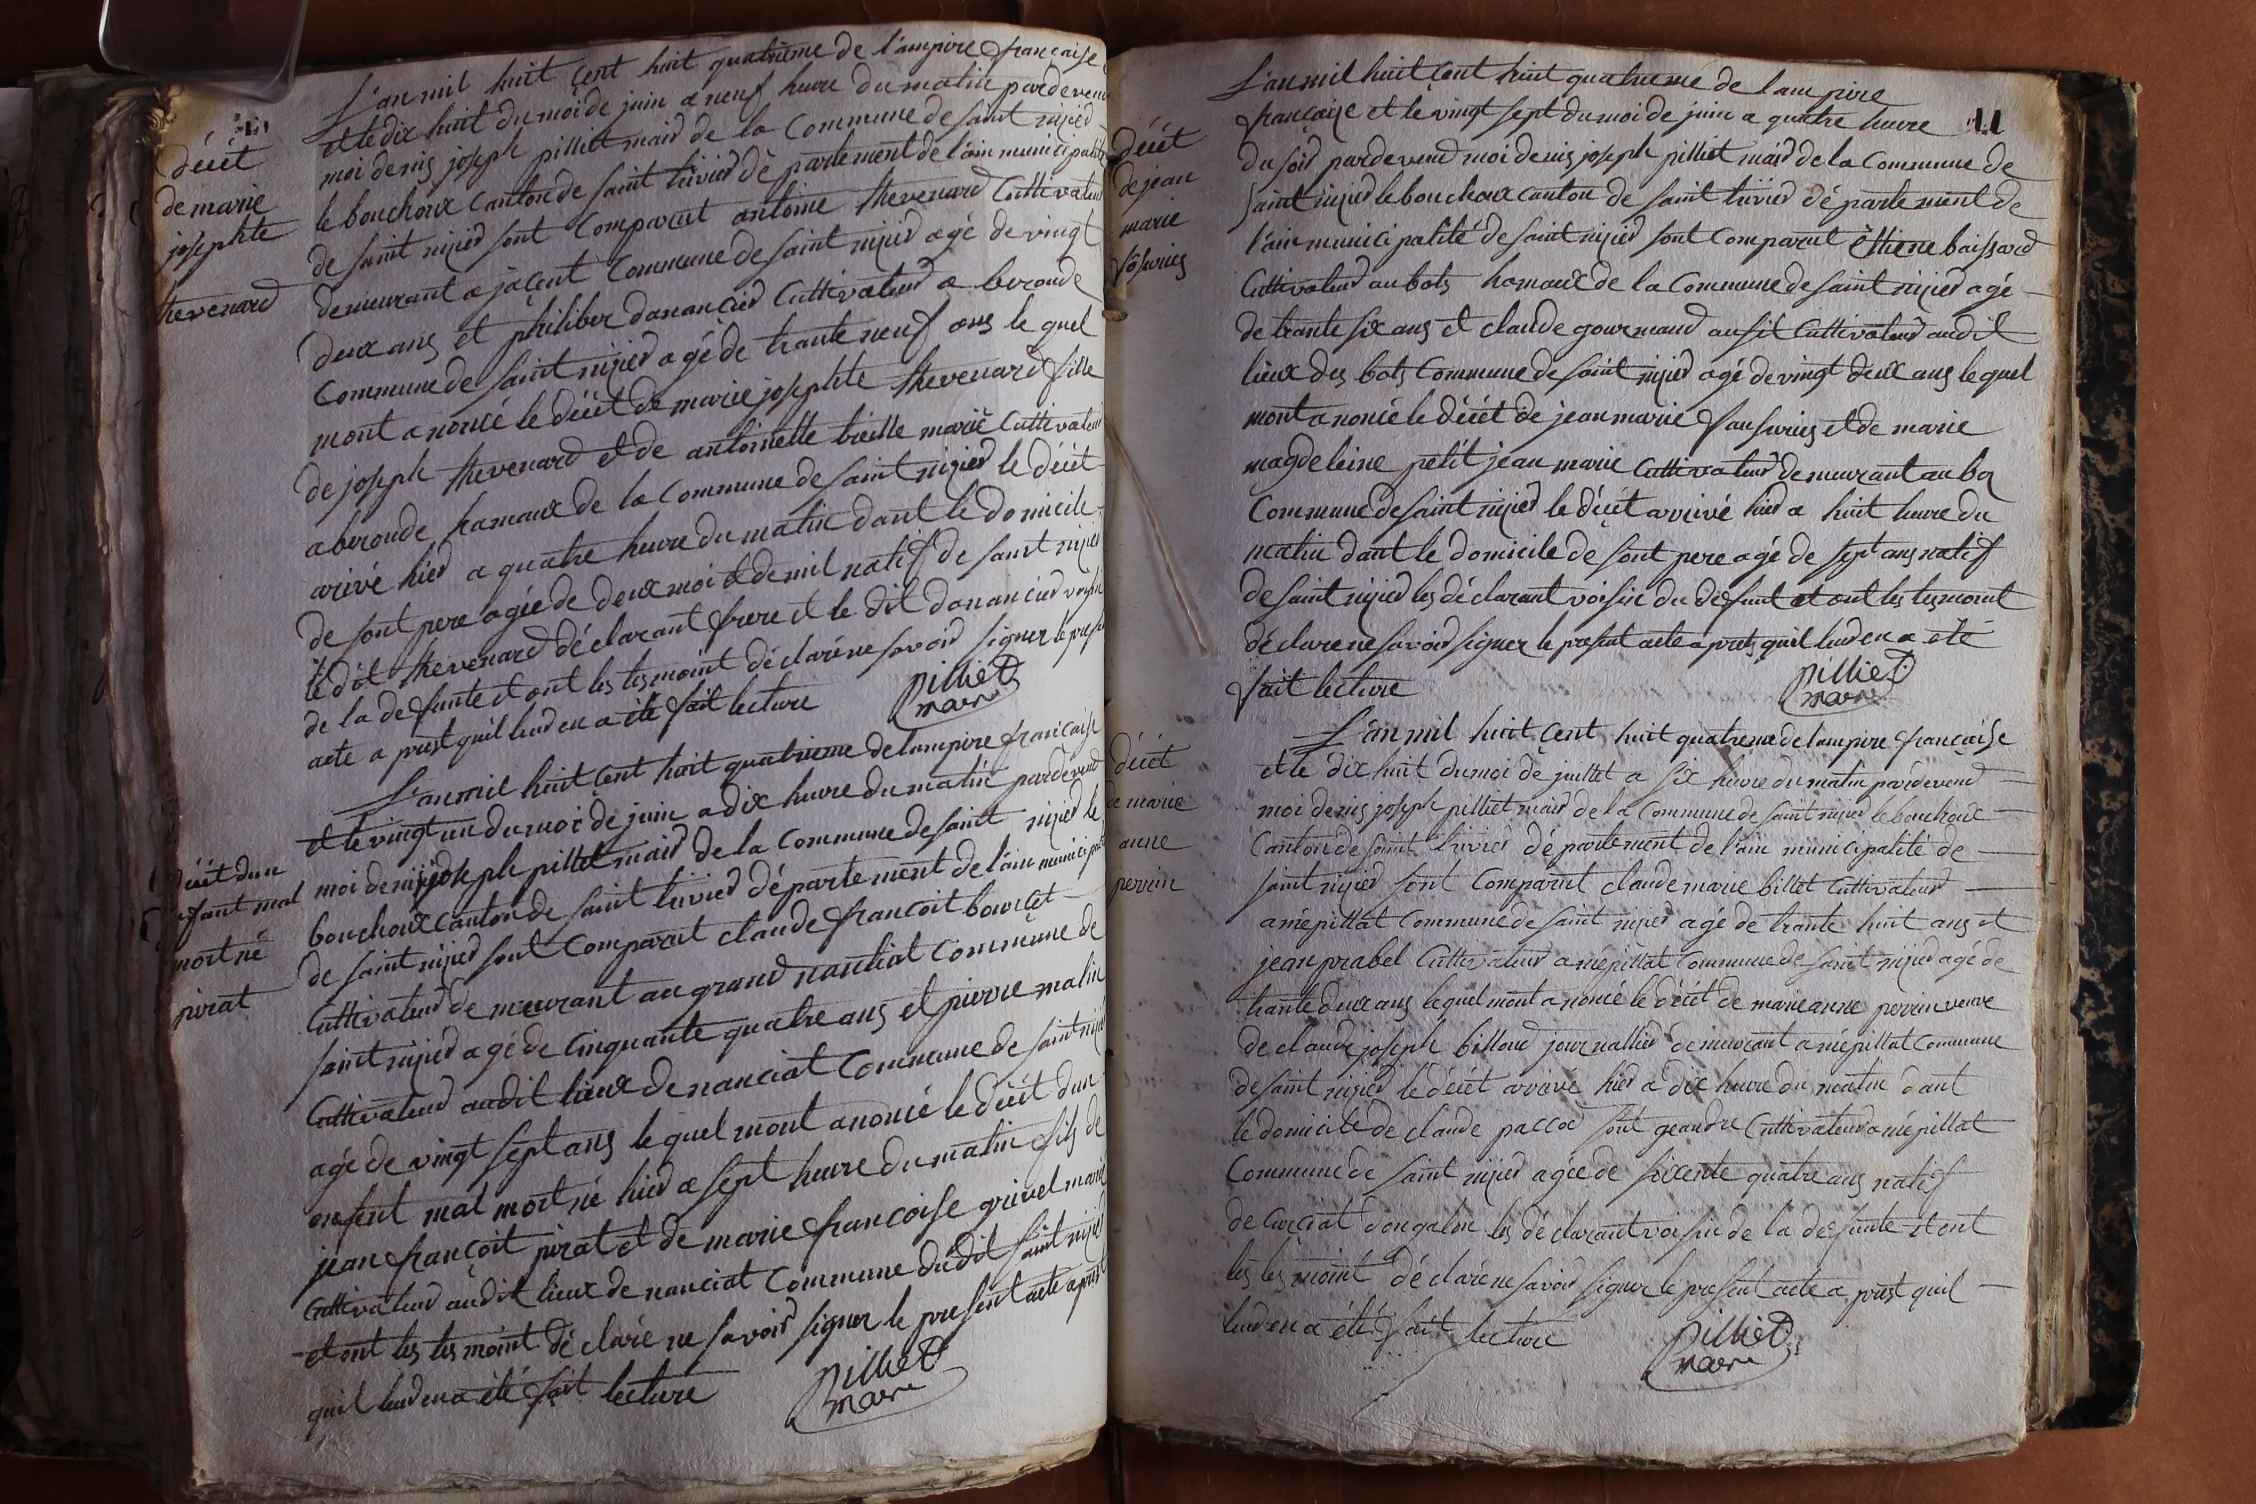 décèt
de marie
josephte
thevenard
L'an mil huit cent huit quatrieme de l'ampire française
et le dix huit du moi de juin a neuf heure du matin pardevend
moi denis joseph pilliet maird de la Commune de saint nizied
le bouchoux canton de saint trivied dé partement de l'ain municipalité
de saint nizied sont Comparut antoine thevenard Cultivateud
demeurant a jaçent Commune de saint nizied agé de vingt
deux ans et philiber danancied Cultivateud a beronde
Commune de saint nizied agé de trante neuf ans le quel
mont anoncé le décèt de marie josephte thevenard fille
de joseph thevenard et de antoinette vieille marié Cultivateud
a beronde hamaux de la Commune de saint nizied le décèt
arivé hied a quatre heure du matin dant le domicile
de sont pere agée de deux moi et demil natif de saint nizied
le dit thevenard déclarant frere et le dit danancied voisin
de la defunte et ont les tesmoint déclaré ne savoid signer le present
acte a prest quil leud en a été fait lecture
pilliet
mair
décèt d'un
enfant mal
mort né
pirat
L'an mil huit cent huit quatrieme de lampire française
et le vingt un du moi de juin a dix heure du matin pardevend
moi denis joseph pilliet maird de la Commune de saint nizied le
bouchoux canton de saint trivied département de l'ain municipalité
de saint nizied sont Comparut claude françoit bourcet
Cultivateud demeurant au grand nanciat Commune de
saint nizied agé de Cinquante quatre ans et pierre matin
Cultivateud audit lieux de nanciat Commune de saint nizied
agé de vingt sept ans le quel mont anoncé le décèt d'un
enfent mal mort né hied a sept heure du matin fils de
jean françoit pirat et de marie françoise grivel marié
Cultivateud audit lieux de nanciat Commune dudit saint nizied
et ont les tesmoint déclaré ne savoid signer le present acte aprest
quil leud en a été fait lecture
pilliet
mair
11
décèt
de jean
marie
L'an mil huit cent huit quatrieme de l'ampire
française et le vingt sept du moi de juin a quatre heure
du soid pardevend moi denis joseph pilliet maird de la Commune de
saint nizied le bouchoux canton de saint trivied département de
l'ain municipalité de saint nizied sont Comparut étiene boissard
Cultivateud au bots hamaux de la Commune de saint nizied agé
de trante six ans et claude gourmand ausit Cultivateud audit
lieux des bots Commune de saint nizied agé de vingt deux ans le quel
mont anoncé le décèt de jean marie et de marie
magdeleine petit jean marié Cultivateud demeurant au bot
Commune de saint nizied le décèt arrivé hied a huit heure du
matin dant le domicile de sont pere agé de sept ans natif
de saint nizied les déclarant voisin du defunt et ont les tesmoint
déclare ne savoid signer le present acte aprest quil leud en a été
fait lecture
pilliet
mair
décèt
de marie
anne
perrin
L'an mil huit cent huit quatrieme de lampire française
et le dix huit du moi de juillet a six heure du matin pardevend
moi denis joseph pilliet maird de la Commune de saint nizied le bouchoux
Canton de saint trivied département de l'ain municipalité de
saint nizied sont Comparut claude marie billet Cultivateud
a mépillat Commune de saint nizied agé de trante huit ans et
jean prabel Cultivateud a mépillat Commune de saint nizied agé de
trante deux ans le quel mont anoncé le décèt de marie anne perrin veuve
de claude joseph billoud journallied demeurant a mépillat Commune
de saint nizied le décèt arrivé hied a dix heure du matin dant
le domicile de claude paccoud sont geandre Cultivateud a mépillat
Commune de saint nizied agée de soixente quatre ans natif
de Curciat dongalon les déclarant voisin de la defunte et ont
les tesmoint déclaré ne savoid signer le present acte a prest quil
leud en a été fait lecture
pilliet
mair